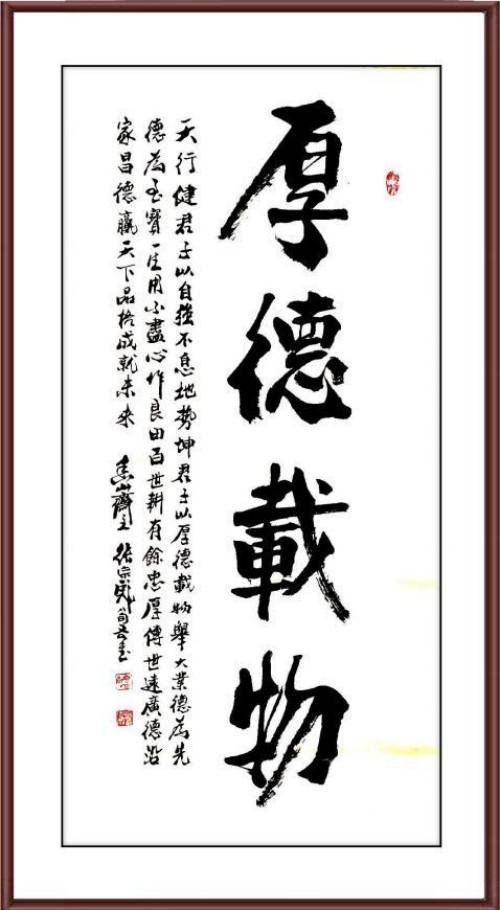 厚德載物
天行健君子以自強不息地势坤君子以厚德載物舉大業德為先
德為至寳一生用不盡心作良田百世耕有餘忠厚傳世遠廣德沿
家昌德贏天下品格成就未来